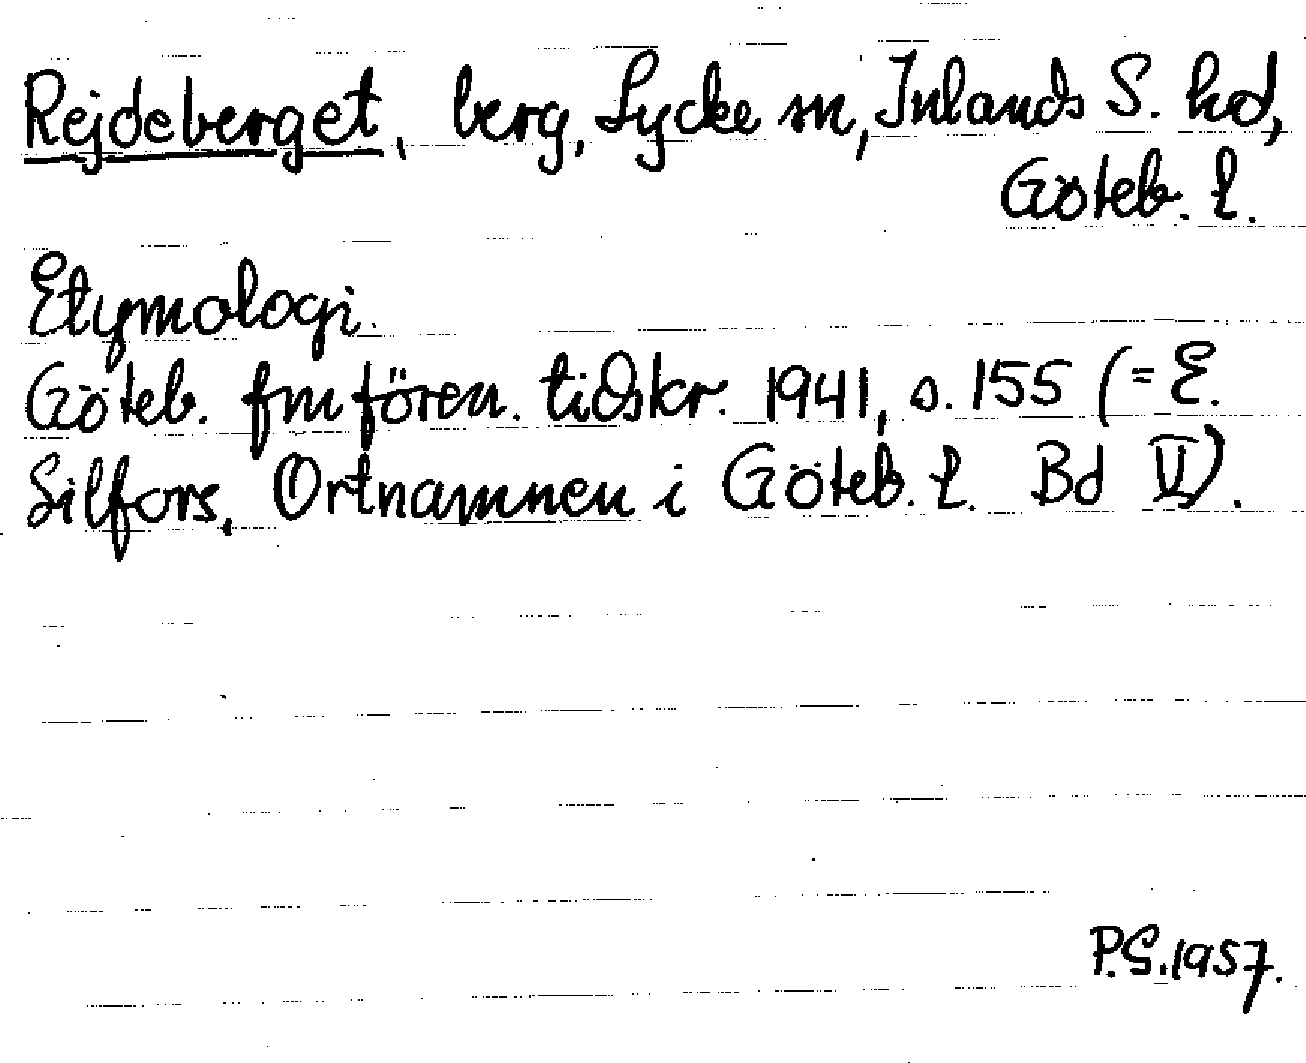 Rejdeberget, berg, Lycke sn, Inlands S. hd,
Göteb. l.
Etymologi.
Göteb. fmfören. tidskr. 1941, s. 155 (= E.
Silfors, Ortnamnen i Göteb. l. Bd V).
P.S. 1957.